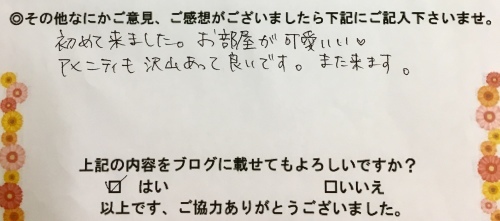 ◎その他なにかご意見、ご感想がございましたら下記にご記入下さいませ。
初めて来ました。お部屋が可愛いい♡
アメニティも沢山あって良いです。また来ます。
上記の内容をブログに載せてもよろしいですか?
☑ はい □いいえ
以上です、ご協力ありがとうございました。